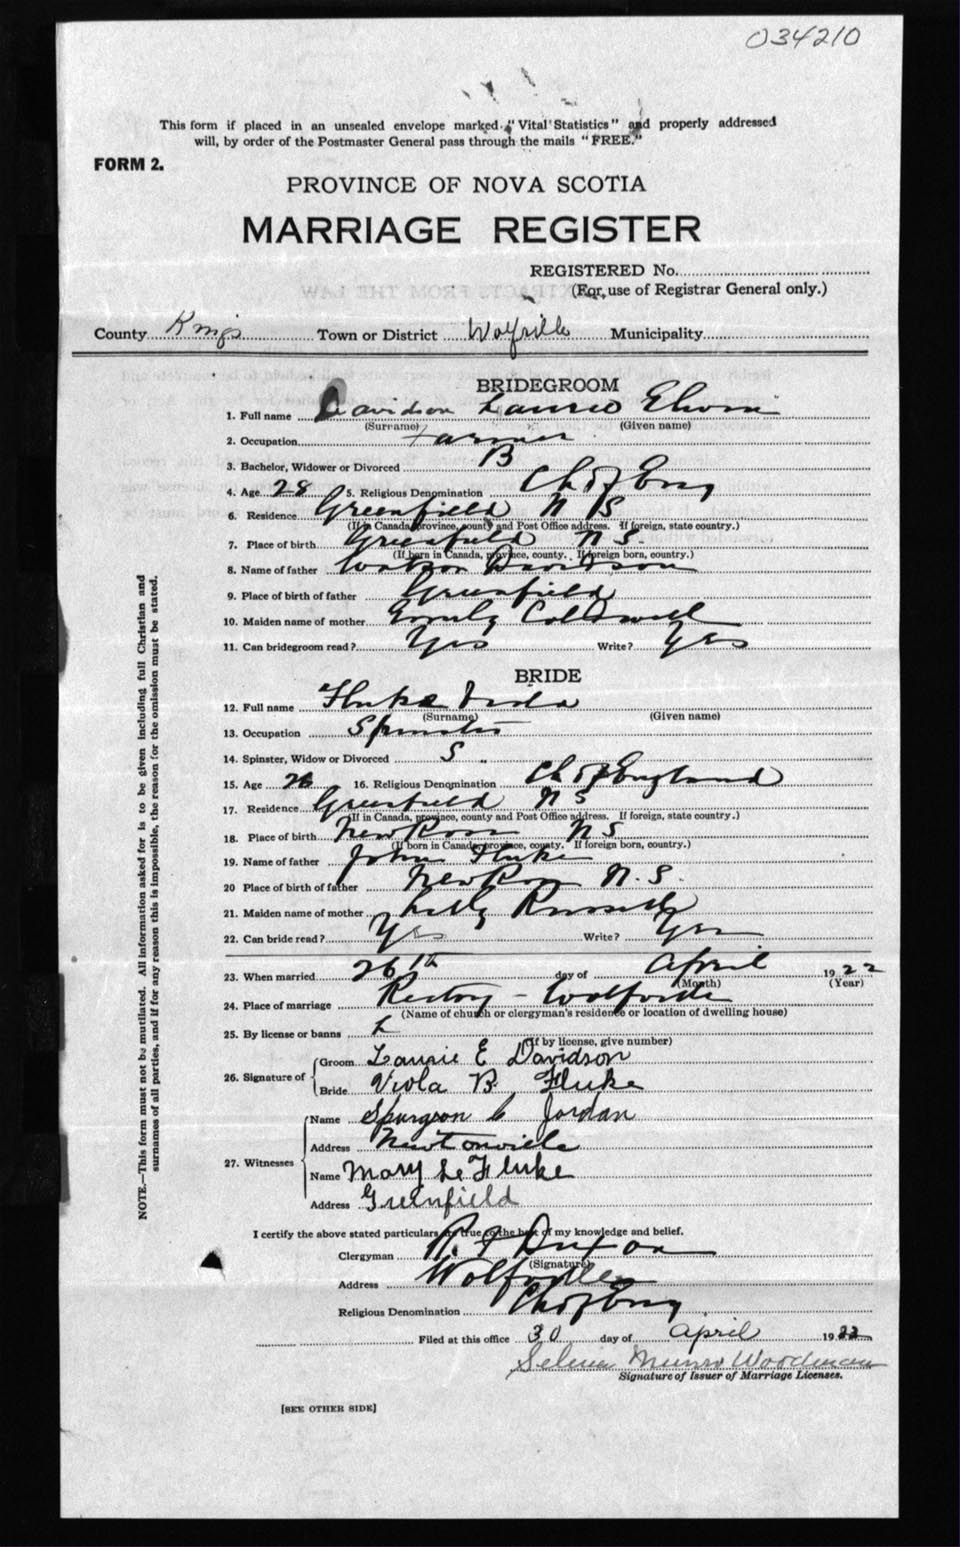 034210
This form if placed in an unsealed envelope marked "Vital Statistics" and properly addressed
will, by order of the Postmaster General pass through the mails "FREE."
FORM 2.
PROVINCE OF NOVA SCOTIA
MARRIAGE REGISTER
REGISTERED No.
(For use of Registrar General only.)
County Kings Town or District Wolfville Municipality
BRIDEGROOM
1. Full name Davidson Laurie Elwin
(Surname) (Given name)
2. Occupation Farmer
3. Bachelor, Widower or Divorced B
4. Age 28 5. Religious Denomination Ch of Eng
6. Residence Greenfield N S
(If in Canada, province, county and Post Office address. If foreign, state country.)
7. Place of birth Greenfield N S
(If born in Canada, province, county. If foreign born, country.)
8. Name of father Watson Davidson
9. Place of birth of father Greenfield
10. Maiden name of mother Emily Coldwell
11. Can bridegroom read? Yes Write? Yes
BRIDE
12. Full name Fluke
(Surname) (Given name)
13. Occupation Spinster
14. Spinster, Widow or Divorced S
15. Age 26 16. Religious Denomination Ch of England
17. Residence Greenfield N S
(If in Canada, province, county and Post Office address. If foreign, state country.)
18. Place of birth New Ross N S
(If born in Canada, province, county. If foreign born, country.)
19. Name of father John Fluke
20 Place of birth of father New Ross N. S.
21. Maiden name of mother
22. Can bride read? Yes Write? Yes
23. When married 26th day of April 1922
(Month) (Year)
24. Place of marriage Rectory - Wolfville
(Name of church or clergyman's residence or location of dwelling house)
25. By license or banns L
(If by license, give number)
26. Signature of
Groom Laurie E Davidson
Bride Viola B. Fluke
27. Witnesses
Name Spurgeon C Jordan
Address Newtonville
Name Mary L. Fluke
Address Greenfield
I certify the above stated particulars are true to the best of my knowledge and belief.
Clergyman R. F Dixon
(Signature)
Address Wolfville
Religious Denomination Ch of Eng
Filed at this office 30 day of April 1922
Selena Munro Woodman
Signature of Issuer of Marriage Licenses.
[SEE OTHER SIDE]
NOTE.—This form must not be mutilated. All information asked for is to be given including full Christian and
surnames of all parties, and if for any reason this is impossible, the reason for the omission must be stated.